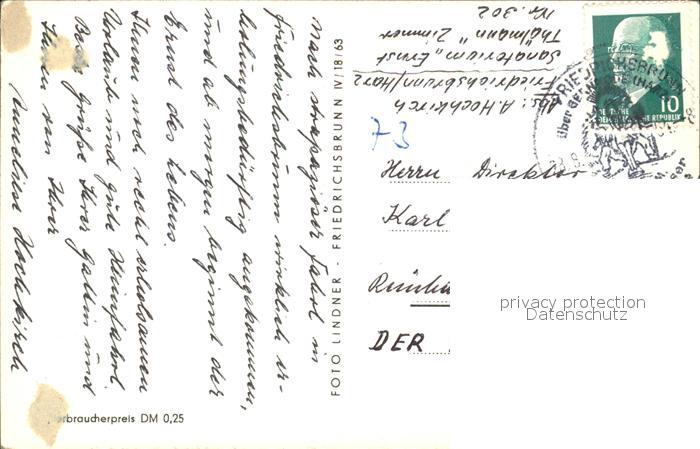 Nach strapaziöser Fahrt in
Friedrichsbrunn wirklich er-
holungsbedürftig angekommen,
und ab morgen beginnt der
Ernst des Lebens.
Ihnen noch recht erholsamen
Urlaub und gute Heimfahrt.
Beste Grüße Ihrer Gattin und
Ihnen von Ihrer
Hochkirch
FOTO LINDNER - FRIEDRICHSBRUNN IV/18/63
Abs.: A. Hochkirch
Friedrichsbrunn/Harz
Sanatorium „Ernst
Thälmann" Zimmer
Nr. 302
73
Herrn Direktor
Karl
DER
FRIEDRICHSBRUNN
über
10
DEUTSCHE
DEMOKRATISCHE REPUBLIK
privacy protection
Datenschutz
rbraucherpreis DM 0,25